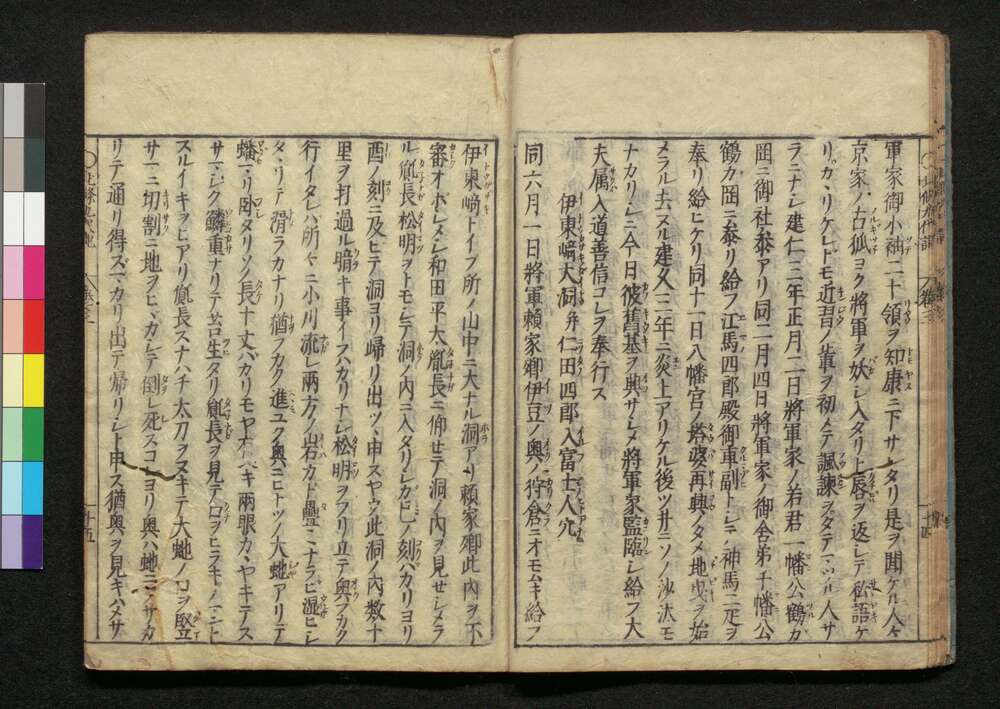 軍家御小袖二十領ヲ知康ニ下サレタリ是ヲ聞ケル人々
京家ノ古狐ヨク將軍ヲ妖シ入タリト唇ヲ返シテ私語ケ
リカヽリケレトモ近習ノ輩ヲ初メテ諷諫ヲタテマツル人サ
ラニナシ建仁三年正月二日將軍家ノ若君一幡公鶴カ
岡ニ御社參アリ同二月四日將軍家ノ御舍弟千幡公
鶴カ岡ニ參リ給フ江馬四郎殿御車副トシテ神馬二疋ヲ
奉リ給ヒケリ同十一日八幡宮ノ塔婆再興ノタメ地曳ヲ始
メラル去ヌル建久二年ニ炎上アリケル後ツ井ニソノ沙汰モ
ナカリシニ今日彼舊基ヲ興サシメ將軍家監臨シ給フ大
夫属入道善信コレヲ奉行ス
伊東﨑大洞并仁田四郎入富士人穴
同六月一日將軍賴家卿伊豆ノ奥ノ狩倉ニオモムキ給フ
伊東﨑トイフ所ノ山中ニ大ナル洞アリ賴家卿此内ヲ不
審オボシメシ和田平太胤長ニ仰せテ洞ノ内ヲ見せシメラ
ル胤長松明ヲトモシテ洞ノ内ニ入タリシガ巳ノ刻バカリヨリ
酉ノ刻ニ及ヒテ洞ヨリ歸リ出ツヽ申スヤウ此洞ノ内数十
里ヲ打過ル暗キ事イフハカリナシ松明ヲフリ立テ奥フカク
行イタレハ所々ニ小川流レ兩方ノ岩カド疊ミナラヒ湿ヒシ
タヽリテ滑ラカナリ猶フカク進ユク奥ニヒトツノ大虵アリテ
蟠マリ囘タリソノ長十丈バカリモヤ有ベキ兩眼カヽヤキテス
サマシク鱗重ナリテ苔生タリ胤長ヲ見テ口ヲヒラキノマント
スルイキヲヒアリ胤長スナハチ太刀ヲヌキテ大虵ノ口ヲ竪
サマニ切割ニ地ヲヒヽカシテ倒レ死スコヽヨリ奥ハ虵ニフサガ
リテ通リ得ズマカリ出テ歸リシト申ス猶奥ヲ見キハメサ